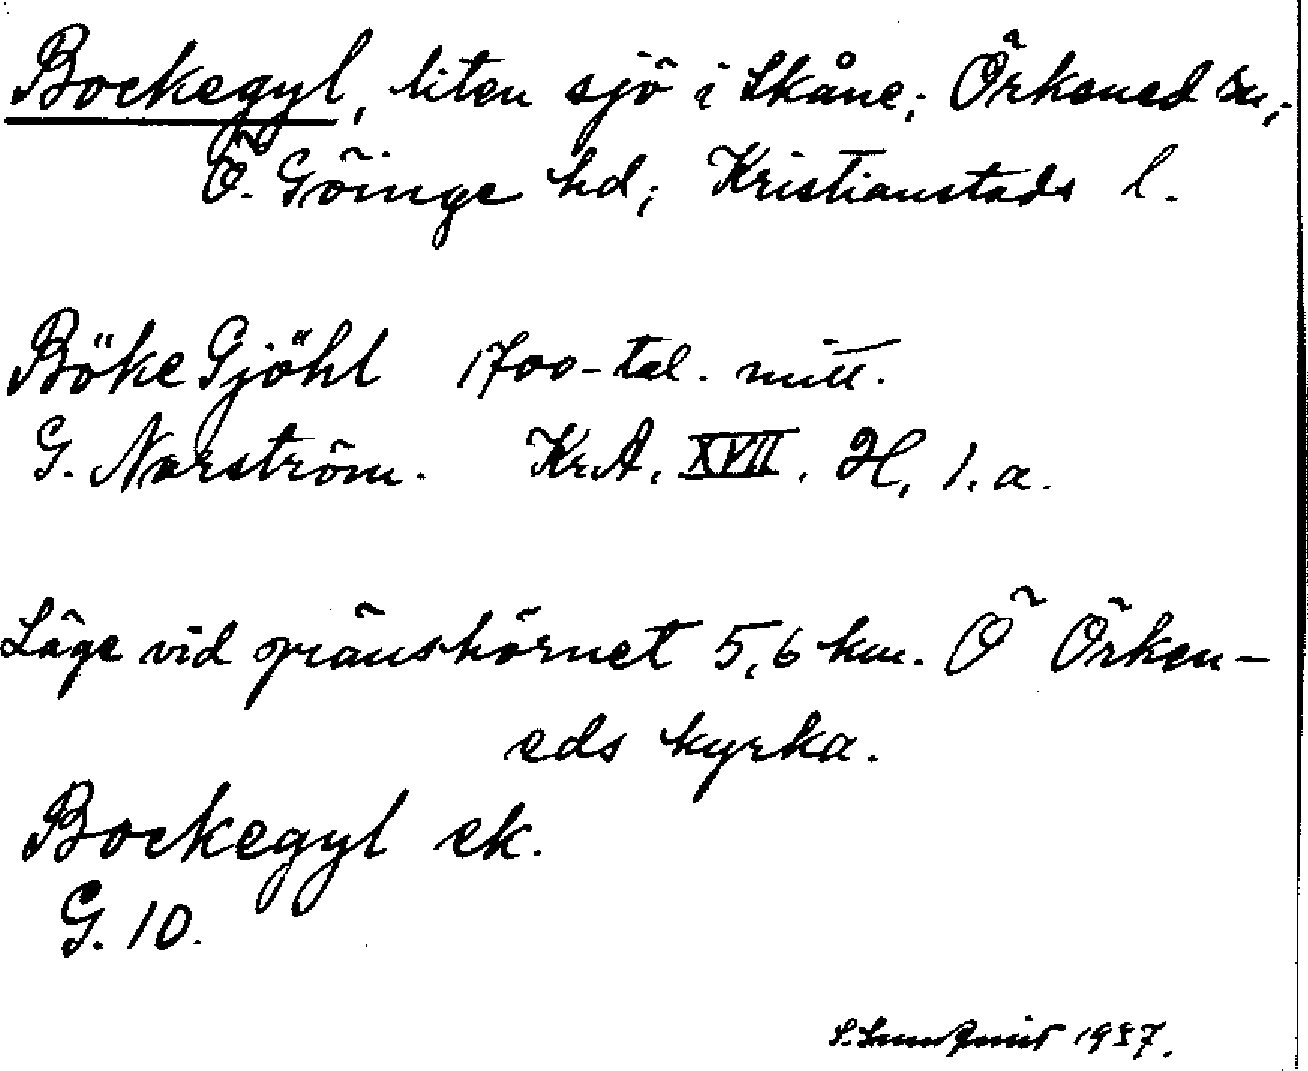 Bockegyl, liten sjö i Skåne; Örkened sn;
Ö. Göinge hd; Kristianstads l.
Böke Gjöhl 1700-tal. mitt.
G. Norström. KrA. XVII. H, 1. a.
Läge vid gränshörnet 5,6 km. Ö Örken-
eds kyrka.
Bockegyl ek.
G. 10.
1937.